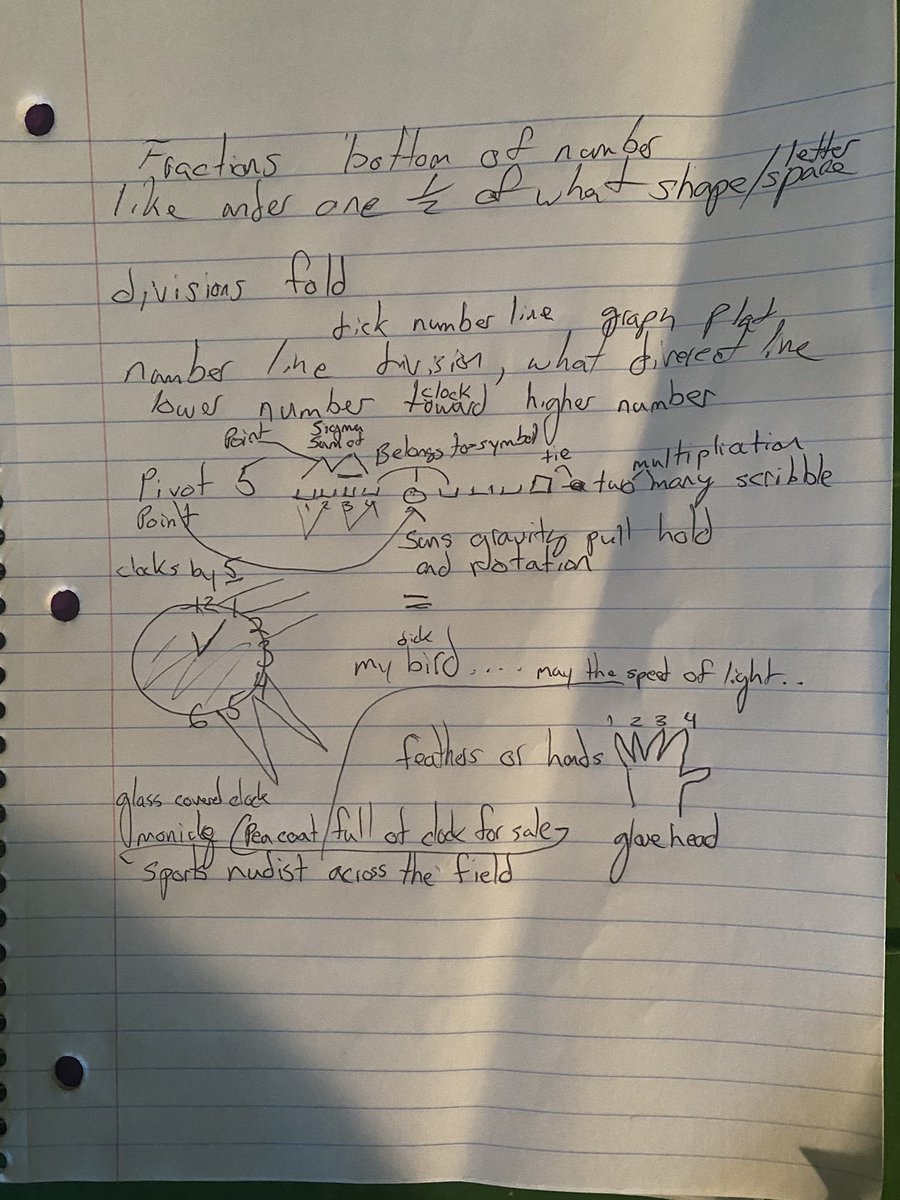 Fractions bottom of number
letter
like order one 1/2 of what shape/space
divisions fold
tick number line graph plat
number line division, what direrect line
clock
lower number toward higher number
Point Sigma Sum of Belongs to symbol
tie multiplication
Pivot 5 1 2 3 4 two many scribble
Point Suns gravity pull hold
clocks by 5 and rotation
=
12 1 2 3 4 5 6
sick
my bird .... may the speed of light..
1 2 3 4
feathers or hands
glass covered clock
monicle (Pea coat/full of clock for sale) glove head
sports nudist across the field